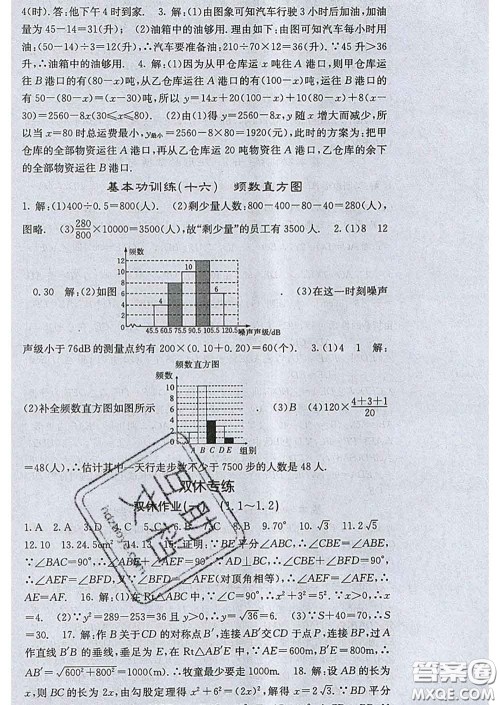 4(时). 答:他下午4时到家. 3. 解:(1)由图象可知汽车行驶3小时后加油,加油
量为45-14=31(升); (2)油箱中的油够用. 理由如下:由图可知汽车每小时用
油为:(50-14)÷3=12(升),∴汽车要准备油:210÷70×12=36(升). ∵45升>36
升,∴油箱中的油够用. 4. 解:(1)因为从甲仓库运x吨往A港口,则甲仓库运往
B港口的有(80-x)吨,从乙仓库运往A港口的有(100-x)吨,运往B港口的
有50-(80-x)=(x-30)吨,所以y=14x+20(100-x)+10(80-x)+8(x-
30)=2560-8x(30≤x≤80). (2)由(1)得y=2560-8x,y随x增大而减少,所
以当x=80时总运费最小,y最小=2560-8×80=1920(元),此时的方案为:把甲
仓库的全部物资运往A港口,再从乙仓库运20吨物资往A港口,乙仓库的余下
的全部物资运往B港口.
基本功训练(十六) 频数直方图
1. 解:(1)400÷0.5=800(人). (2)剩少量人数:800-400-80-40=280(人),
图略. (3)280/800×10000=3500(人),故“剩少量”的员工有3500人. 2. (1)8 12
频数
12
10
8
6
4
2
0.30 解:(2)如图
45.5 60.5 75.5 90.5 105.5 120.5
噪声声级/dB
. (3)在这一时刻噪声
声级小于76dB的测量点约有200×(0.10+0.20)=60(个). 3. (1)4 1 解:
频数直方图
频数
12
10
8
6
4
2
A B C D E 组别
(2)补全频数直方图如图所示
. (3)B (4)120×(4+3+1)/20
=48(人),∴估计其中一天行走步数不少于7500步的人数是48人.
双休专练
双休作业(一) (1.1~1.2)
1. A 2. A 3. D 5. C 6. B 7. B 8. C 9. 70° 10. √3 11. 2
12. 10 13. 24.5m² 14. 15. 证明:∵BE平分∠ABC,∴∠CBE=∠ABE,
∵∠BAC=90°,∴∠ABE+∠AEF=90°. ∵AD⊥BC,∴∠CBE+∠BFD=90°,
∴∠AEF=∠BFD. 又∵∠BFD=∠AFE(对顶角相等),∴∠AEF=∠AFE,
∴AE=AF. 16. 解:(1)在Rt△ABC中,∵∠C=90°,∴x²+3²=5². ∵x>0,∴x=
4. (2)∵y²=289-253=36且y>0,∴y=√36=6. (3)∵S+40=70,∴S
=30. 17. 解:作B关于CD的对称点B′,连接AB′交CD于点P,连接BP,过A
作直线B′B的垂线,垂足为E,在Rt△AB′E中,∵AE=600m,B′E=800m,
∴AB′=√(600²+800²)=1000(m). ∴牧童最少要走1000m. 18. 解:设AB的长为
x,则BC的长为2x,由勾股定理得x²+6²=(2x)²,解得x=2√3. ∵BD平分
hdzuoye.com
MXQE.COM